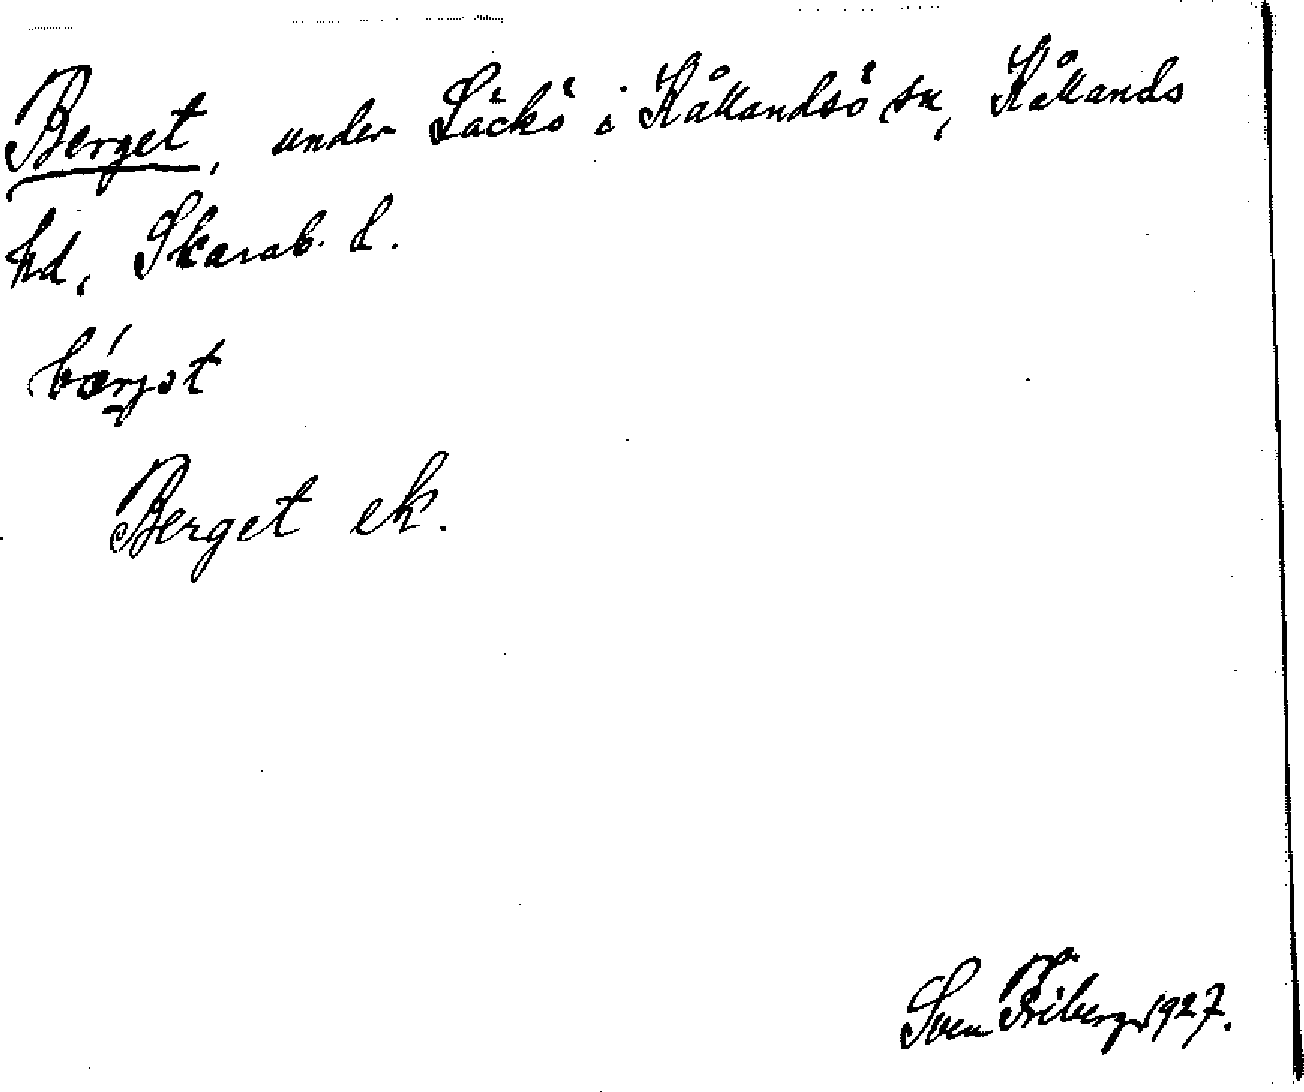 Berget, under Läckö i Kållandsö sn, Kållands
hd, Skarab. l.
Berget ek.
Sven Friberg 1927.